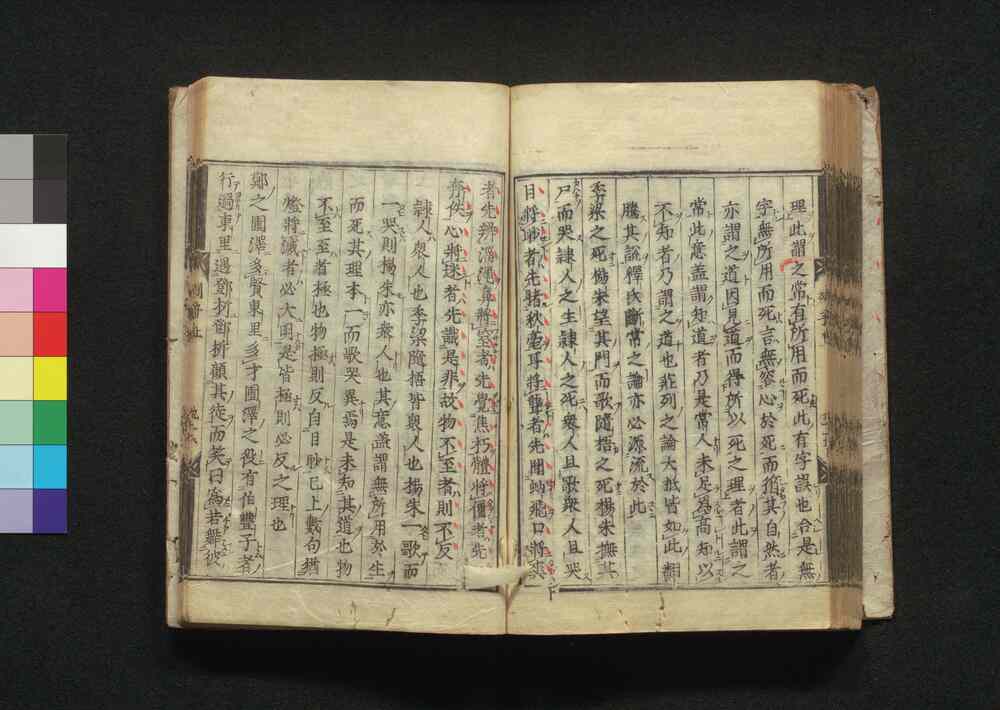 理此謂之常有所用而死此有字誤也合是無
字無所用而死言無容心於死而循其自然者
亦謂之道因見道而得所以死之理者此謂之
常此意蓋謂知道者乃是常人未足為高知以
不知者乃謂之道也莊列之論大抵皆如此翻
騰其説釋氏斷常之論亦必源流於此
季梁之死楊朱望其門而歌隨梧之死楊朱撫其
尸而哭隷人之生隷人之死衆人且歌衆人且哭
目將眇者先睹秋毫耳將聾者先聞蚋飛口將爽
者先辨淄澠鼻將窒者先覺焦朽體將僵者先
奔佚心將迷者先識是非故物不至者則不反
隷人衆人也季梁隨梧皆衆人也楊朱一歌而
一哭則楊朱亦衆人也其意蓋謂無所用於生
而死其理本一而歌哭異焉是未知其道也物
不至至者極也物極則反自目眇已上數句猶
燈將滅者必大明是皆極則必反之理也
鄭之圃澤多賢東里多才圃澤之役有伯豐子者
行過東里遇鄧析鄧析顧其徒而笑曰為若舞彼